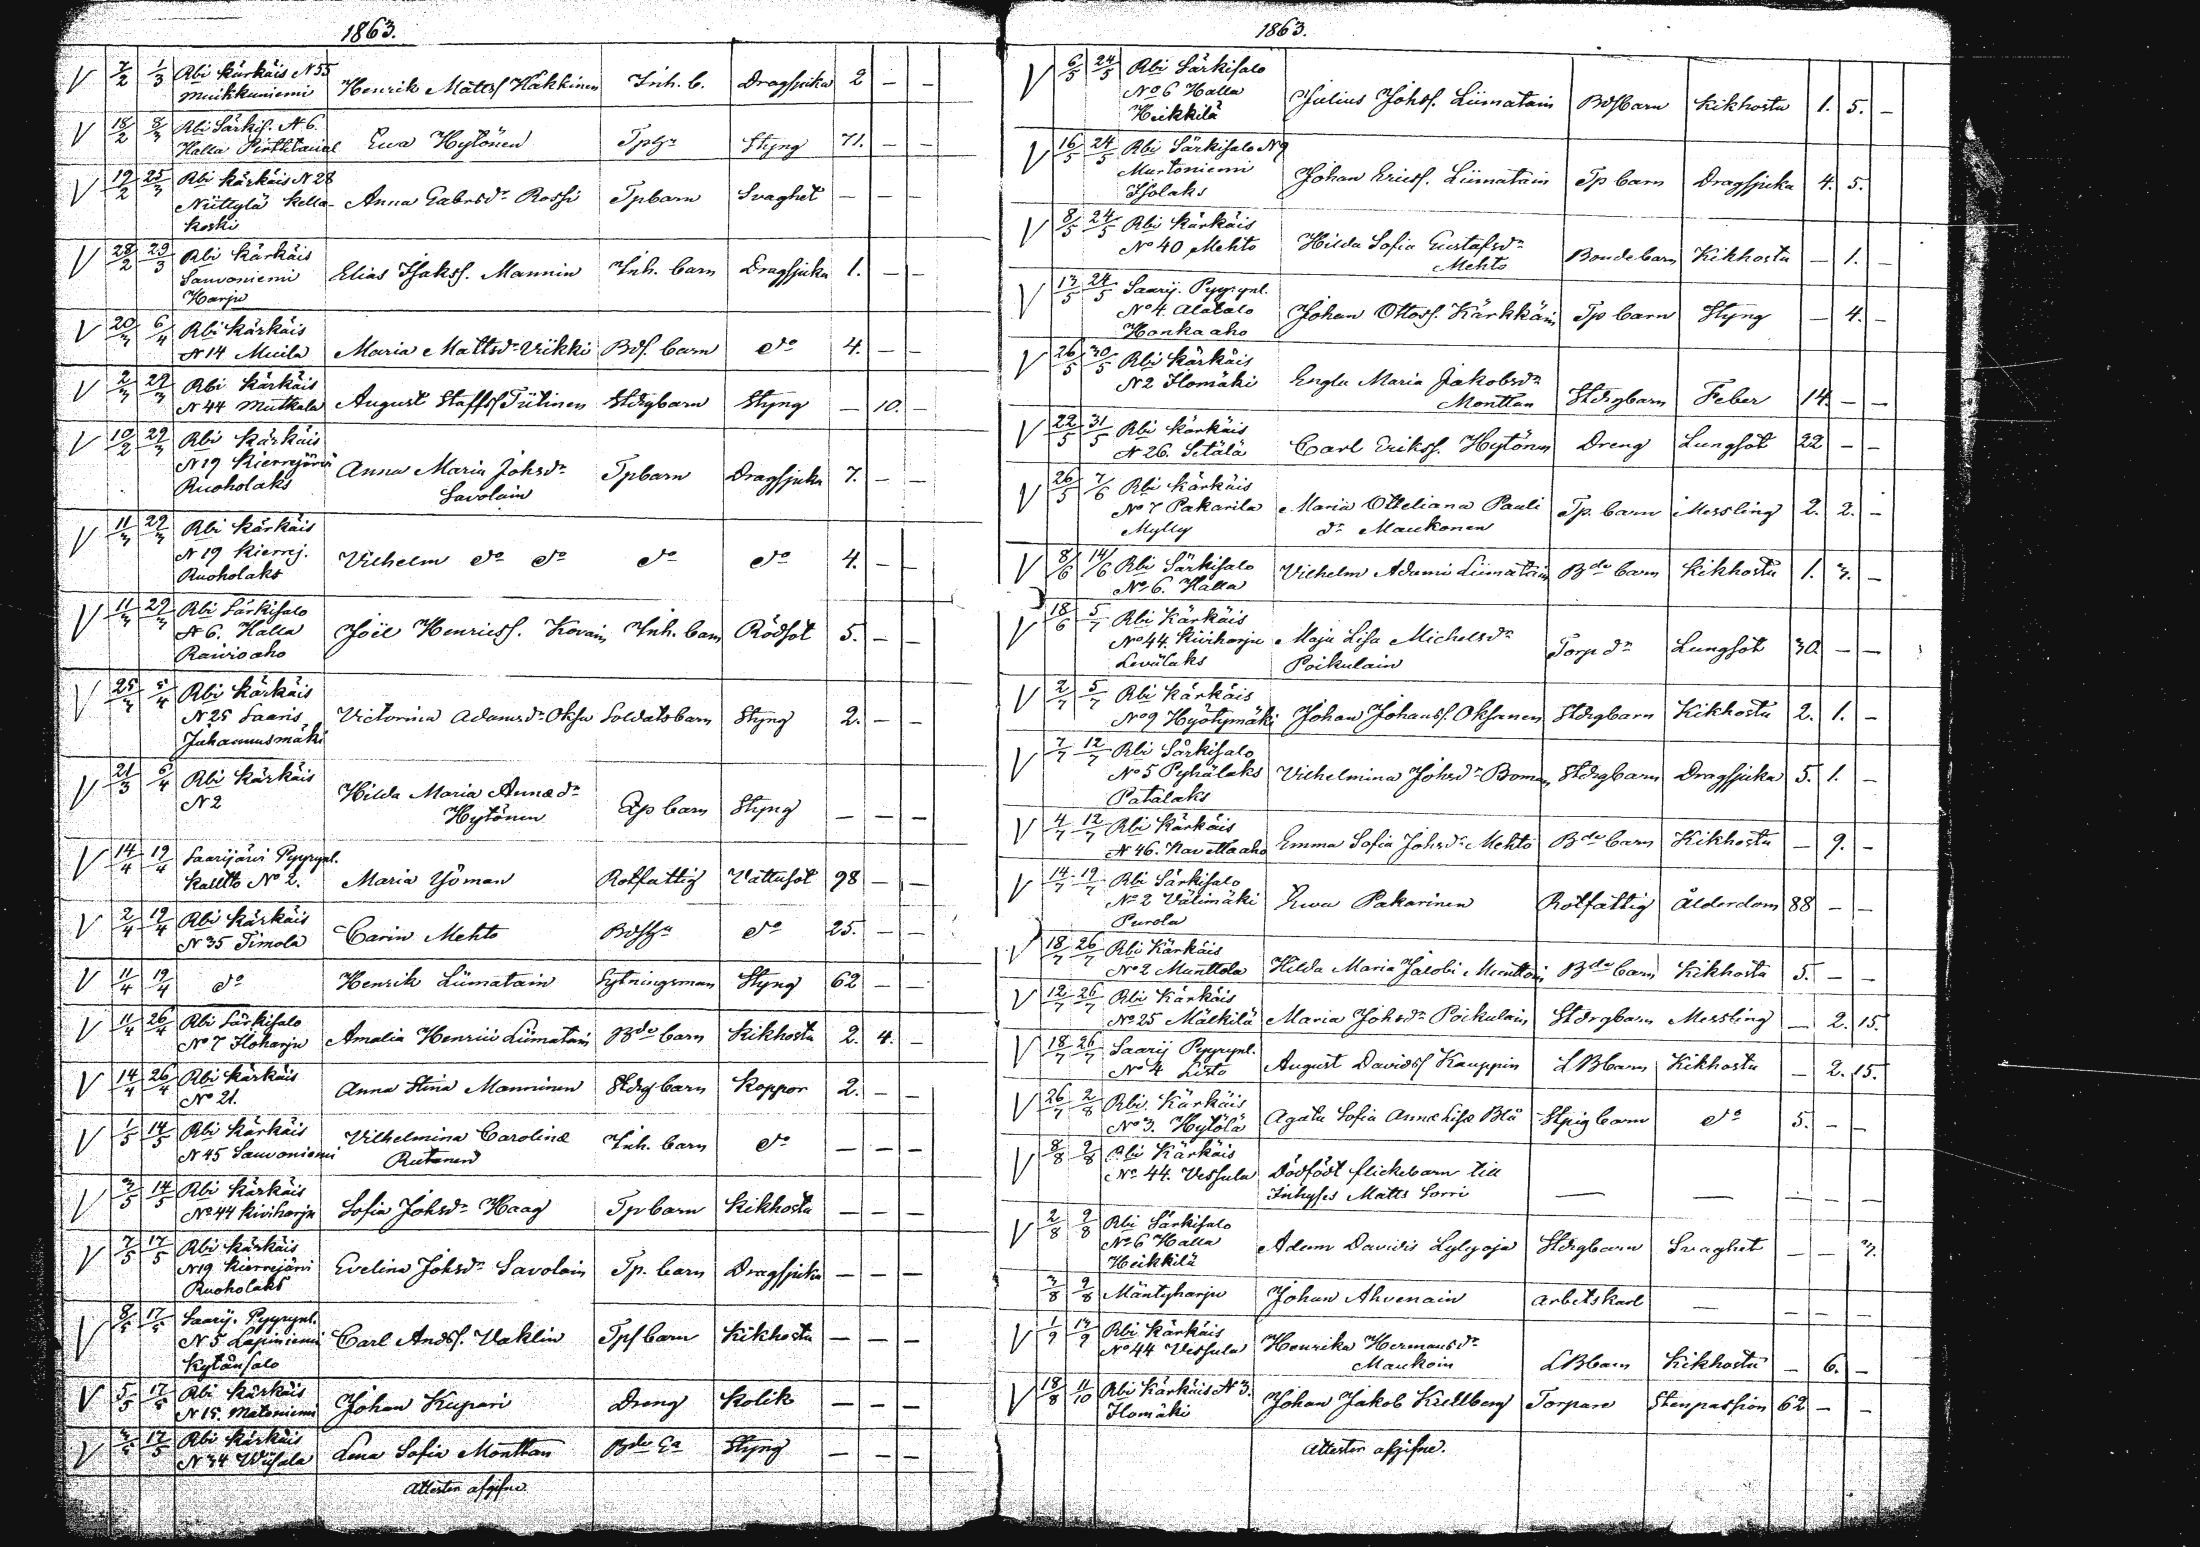 1863.
V 7/2 1/3 Rbi Kärkäis N 55 Muikkuniemi Henrik Mattsſ Häkkinen Inh. b. Dragsjuka 2 — —
V 18/2 8/3 Rbi Särkis. N 6. Halla Ewa Hytönen Stÿng 71. — —
V 19/2 25/3 Rbi Kärkäis N 28 Niittylä Kella- koski Anna Gabrsdr Rossi Tpbarn Svaghet — — —
V 28/2 29/3 Rbi Kärkäis Sauvoniemi Harju Elias Isakss. Mannin Inh. barn Dragsjuka 1. — —
V 20/3 6/4 Rbi Kärkäis N 14 Muila Maria Mattsdr Vikki Bds. barn do 4. — —
V 2/3 29/3 Rbi Kärkäis N 44 Mutkala August Staffsſ Tiitinen Stdrgbarn Stÿng — 10. —
V 10/2 29/3 Rbi Kärkäis N 19 Kierrejärvi Ruoholaks Anna Maria Johsdr Savolain Tpbarn Dragsjuka 7. — —
V 11/3 29/3 Rbi Kärkäis N 19 Kierrej. Ruoholaks Vilhelm do do do do 4. — —
V 11/3 29/3 Rbi Särkisalo N 6. Halla Raivioaho Joël Henricss. Kovain Inh. barn Rödsot 5. — —
V 25/3 5/4 Rbi Kärkäis N 25 Saaris Juhannusmäki Victorina Adamsdr Oksa Soldatsbarn Stÿng 2. — —
V 21/3 6/4 Rbi Kärkäis N 2 Hilda Maria Annædr Hytönen barn Stÿng — — —
V 14/4 19/4 Saarijärvi Pyyrynl. Kalltto No 2. Maria Yöman Rotfattig Vattusot 98 — —
V 2/4 19/4 Rbi Kärkäis N 35 Timola Carin Mehto do 25. — —
V 11/4 19/4 do Henrik Liimatain Sytningsman Stÿng 62 — —
V 11/4 26/4 Rbi Särkisalo No 7 Iloharju Amalia Henrici Liimatain Bde barn Kikhosta 2. 4. —
V 14/4 26/4 Rbi Kärkäis No 21. Anna Stina Manninen Stdrg barn Koppor 2. — —
V 1/5 14/5 Rbi Kärkäis N 45 Sauvoniemi Vilhelmina Carolinæ Rutanen Inh. barn do — — —
V 3/5 14/5 Rbi Kärkäis No 44 Kiviharju Sofia Johsdr Haag Tp barn Kikhosta — — —
V 7/5 17/5 Rbi Kärkäis N 19 Kierrejärvi Ruoholaks Evelina Johsdr Savolain Tp. barn Dragsjuka — — —
V 8/5 17/5 Saarij. Pyyrynl. N 5 Lapiniemi Kytänsalo Carl Andss. Vaklin Tps barn Kikhosta — — —
V 5/5 17/5 Rbi Kärkäis N 15. Matoniemi Johan Kupari Dreng Kolik — — —
V 3/5 17/5 Rbi Kärkäis N 34 Wiisala Lena Sofia Monttan Stÿng — — —
Attester afgifne.
1863.
V 6/5 24/5 Rbi Särkisalo No 6 Halla Heikkilä Julius Johss. Liimatain Bdsbarn Kikhosta 1. 5. —
V 16/5 24/5 Rbi Särkisalo N 9 Murtoniemi Isolaks Johan Ericss. Liimatain Tp barn Dragsjuka 4. 5.
V 8/5 24/5 Rbi Kärkäis No 40 Mehto Hilda Sofia Gustafsdr Mehto Bondebarn Kikhosta — 1. —
V 13/5 24/5 Saarij. Pyyrynl. No 4 Alatalo Honkaaho Johan Ottoss. Kärkkäin Tp barn Stÿng — 4. —
V 26/5 30/5 Rbi Kärkäis N 2 Ilomäki Engla Maria Jakobsdr Monttan Stdrgbarn Feber 14. — —
V 22/5 31/5 Rbi Kärkäis N 26. Setälä Carl Erikss. Hytönen Dreng Lungsot 22 — —
V 26/5 7/6 Rbi Kärkäis No 7 Pakarila Mylly Maria Otteliana Pauli dr Maukonen Tp. barn Messling 2. 2. —
V 8/6 14/6 Rbi Särkisalo No 6. Halla Vilhelm Adami Liimatain Bde barn Kikhosta 1. 3. —
V 18/6 5/7 Rbi Kärkäis No 44. Kiviharju Leviälaks Maja Lisa Michelsdr Poikulain Torp dr Lungsot 30. — —
V 2/7 5/7 Rbi Kärkäis No 9 Hyötymäki Johan Johanss. Oksanen Stdrgbarn Kikhosta 2. 1. —
V 7/7 12/7 Rbi Särkisalo No 5 Pyhälaks Patalaks Vilhelmina Johsdr Boman Stdrgbarn Dragsjuka 5. 1. —
V 4/7 12/7 Rbi Kärkäis N 46. Emma Sofia Johsdr Mehto Bde barn Kikhosta — 9. —
V 14/7 19/7 Rbi Särkisalo No 2 Välimäki Purola Ewa Pakarinen Rotfattig Ålderdom 88 — —
V 18/7 26/7 Rbi Kärkäis No 2 Munttola Hilda Maria Jacobi Munttain Bde barn Kikhosta 5. — —
V 12/7 26/7 Rbi Kärkäis No 25 Mälkilä Maria Johsdr Poikulain Stdrgbarn Messling — 2. 15.
V 18/7 26/7 Saarij Pyyrynl. No 4 Listo August Davidsſ Kauppin LBbarn Kikhosta — 2. 15.
V 26/7 2/8 Rbi. Kärkäis No 3. Hytölä Agata Sofia Annæ Lisæ Blå Stpig barn do 5. — —
V 8/8 9/8 Rbi Kärkäis No 44. Vessula Dödfödt flickebarn till Inhyses Matts Sorri — — — — —
V 2/8 9/8 Rbi Särkisalo No 6 Halla Heikkilä Adam Davidis Lylyoja Stdrgbarn Svaghet — — 3.
3/8 9/8 Mäntyharju Johan Ahvenain Arbetskarl — — —
V 1/9 13/9 Rbi Kärkäis No 44 Vessula Henrika Hermansdr Maukoin LBbarn Kikhosta — 6. —
V 18/8 11/10 Rbi Kärkäis N 3. Ilomäki Johan Jakob Krellberg Torpare Stenpassion 62 — —
Attester afgifne.